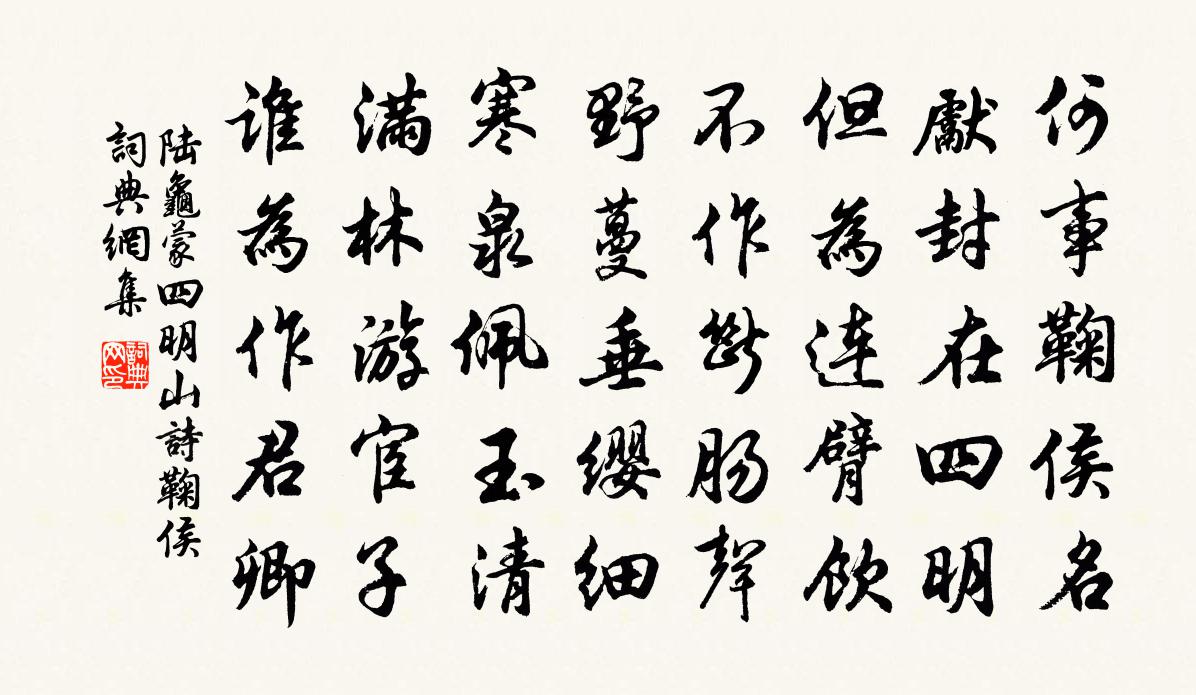 何事鞠侯名
獻封在四明
但為連臂飲
不作斷腸聲
野蔓垂纓細
寒泉佩玉清
滿林游宦子
誰為作君卿
陸龜蒙四明山詩鞠侯
詞典網集
詞典网印